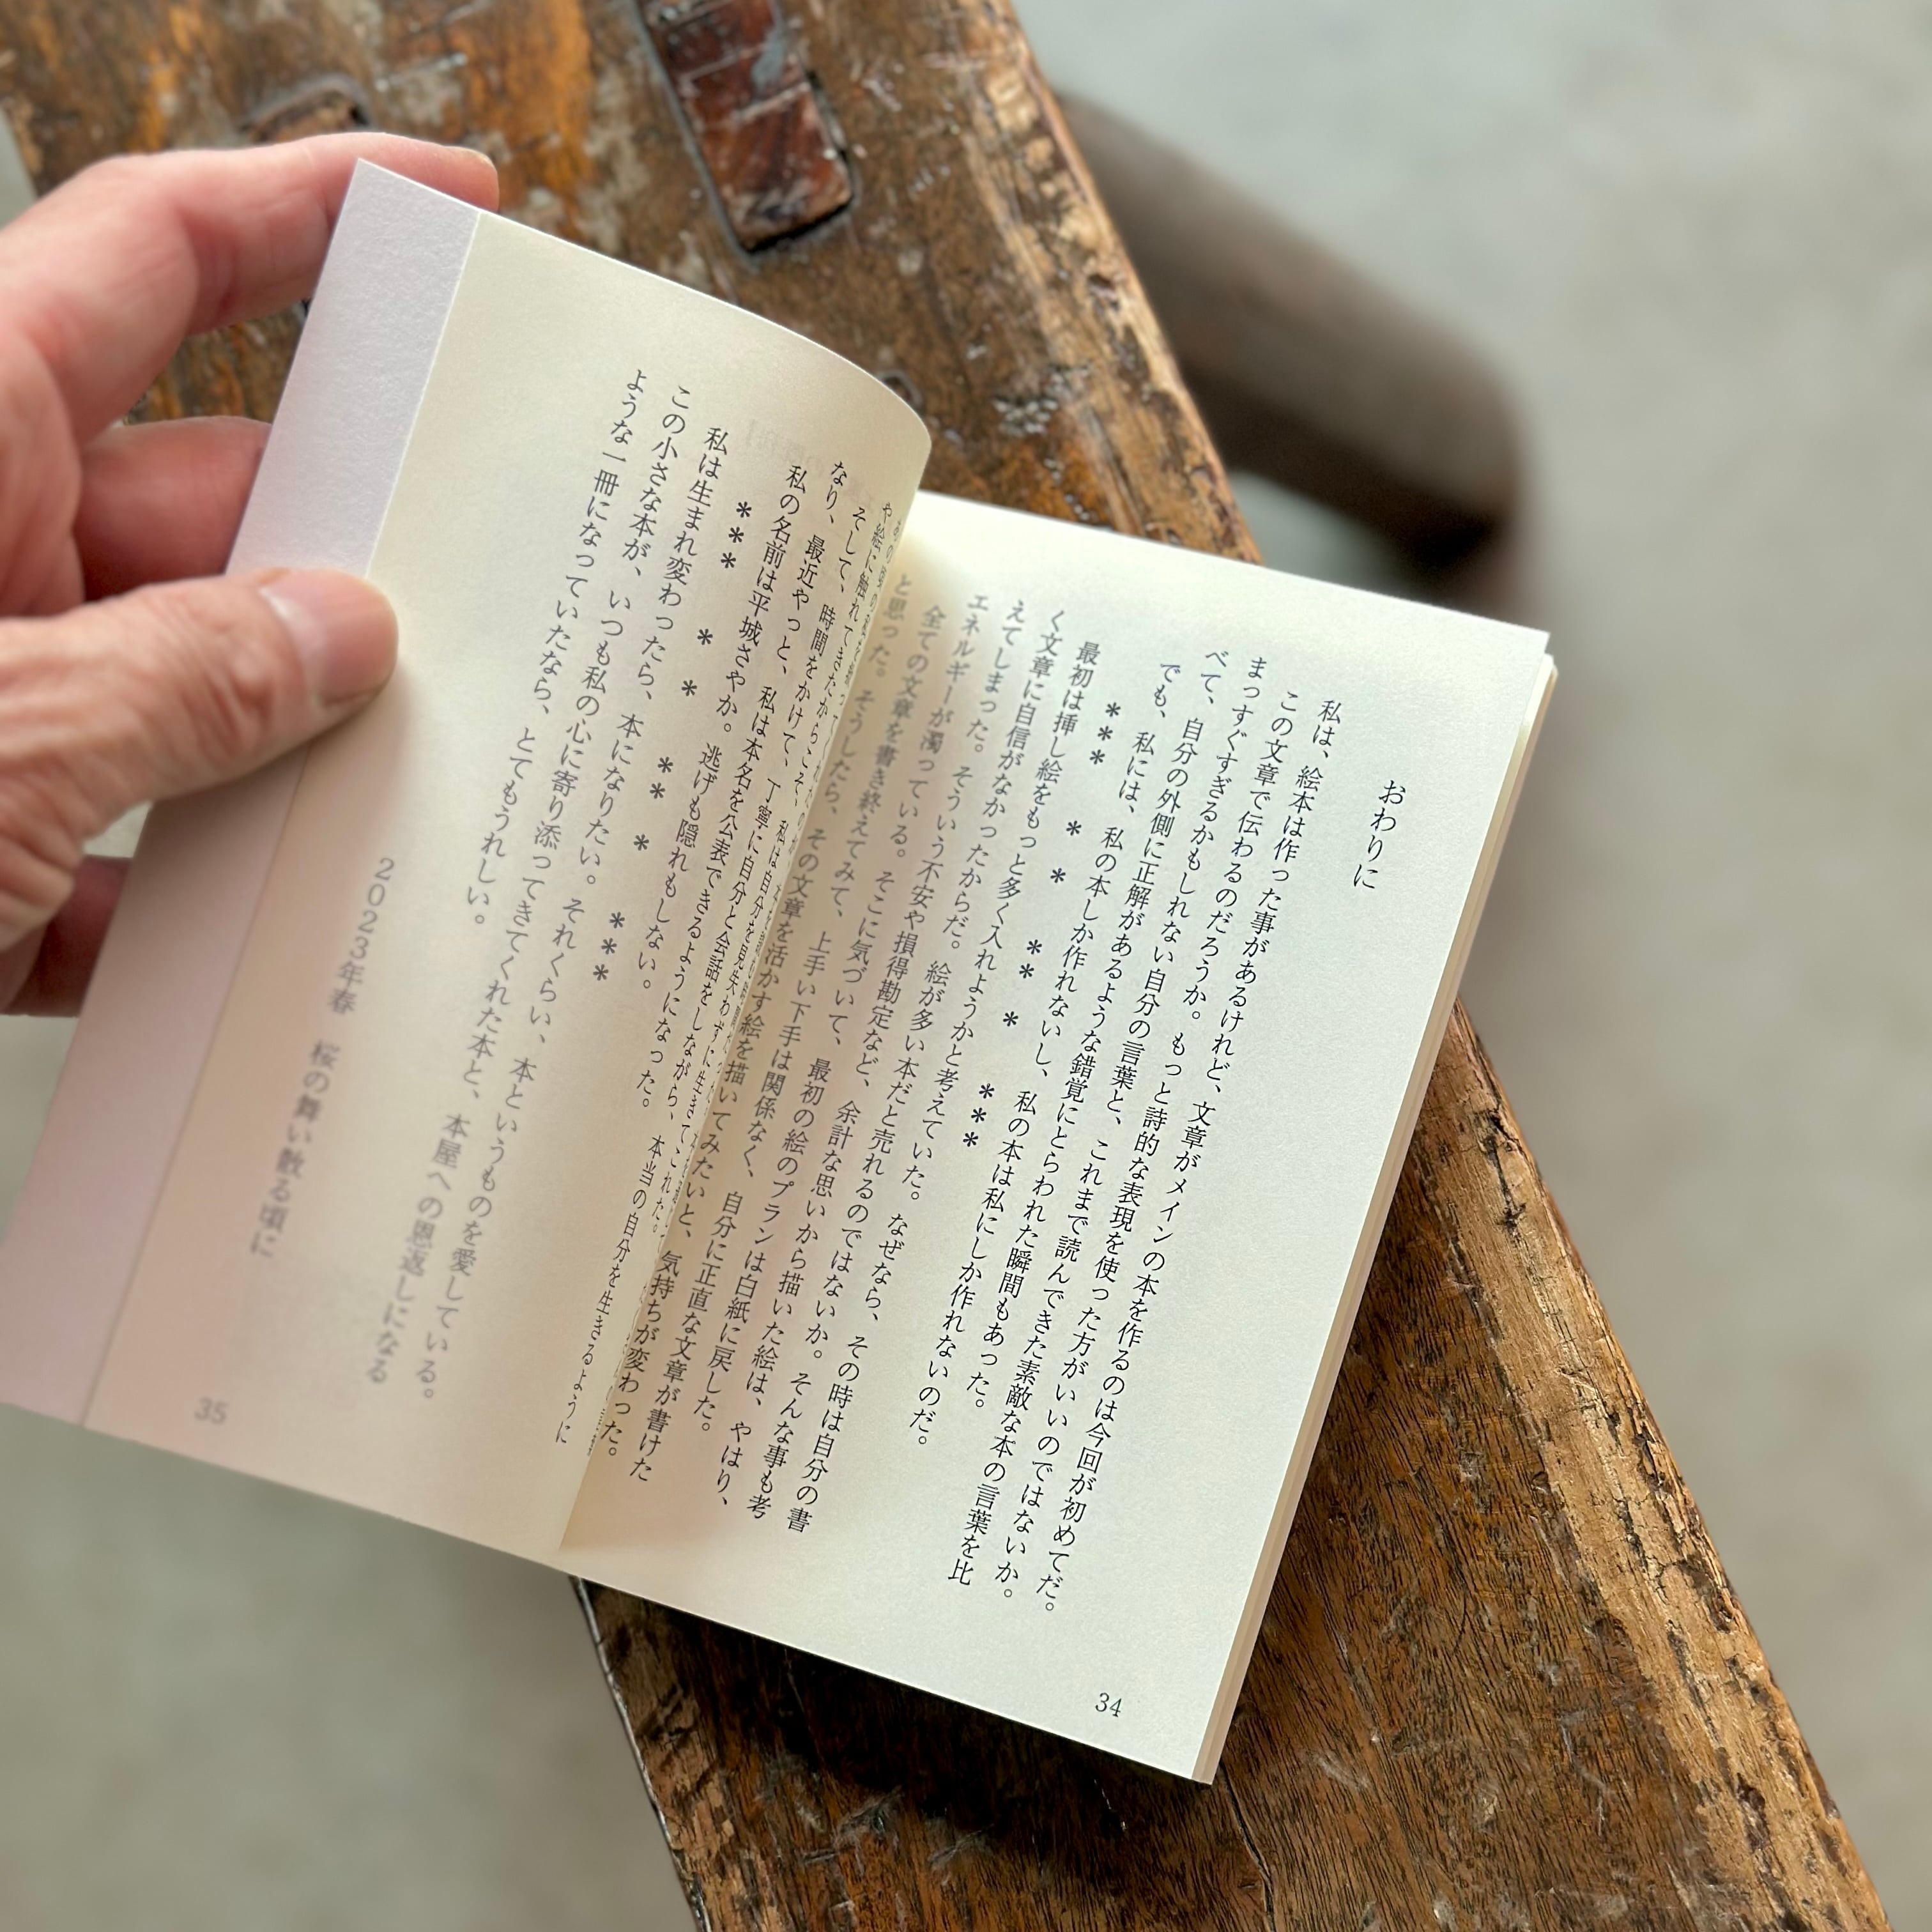 おわりに
私は、絵本は作った事があるけれど、文章がメインの本を作るのは今回が初めてだ。
この文章で伝わるのだろうか。もっと詩的な表現を使った方がいいのではないか。
まっすぐすぎるかもしれない自分の言葉と、これまで読んできた素敵な本の言葉を比
べて、自分の外側に正解があるような錯覚にとらわれた瞬間もあった。
でも、私には、私の本しか作れないし、私の本は私にしか作れないのだ。
*** * * ** * ***
最初は挿し絵をもっと多く入れようかと考えていた。なぜなら、その時は自分の書
く文章に自信がなかったからだ。絵が多い本だと売れるのではないか。そんな事も考
えてしまった。そういう不安や損得勘定など、余計な思いから描いた絵は、やはり、
エネルギーが濁っている。そこに気づいて、最初の絵のプランは白紙に戻した。
全ての文章を書き終えてみて、上手い下手は関係なく、自分に正直な文章が書けた
と思った。そうしたら、その文章を活かす絵を描いてみたいと、気持ちが変わった。
や絵に触れてき
そして、時間をかけて、丁寧に自分と会話をしながら、本当の自分を生きるように
なり、最近やっと、私は本名を公表できるようになった。
私の名前は平城さやか。逃げも隠れもしない。
*** * * ** * ***
私は生まれ変わったら、本になりたい。それくらい、本というものを愛している。
この小さな本が、いつも私の心に寄り添ってきてくれた本と、本屋への恩返しになる
ような一冊になっていたなら、とてもうれしい。
2023年春 桜の舞い散る頃に
34
35